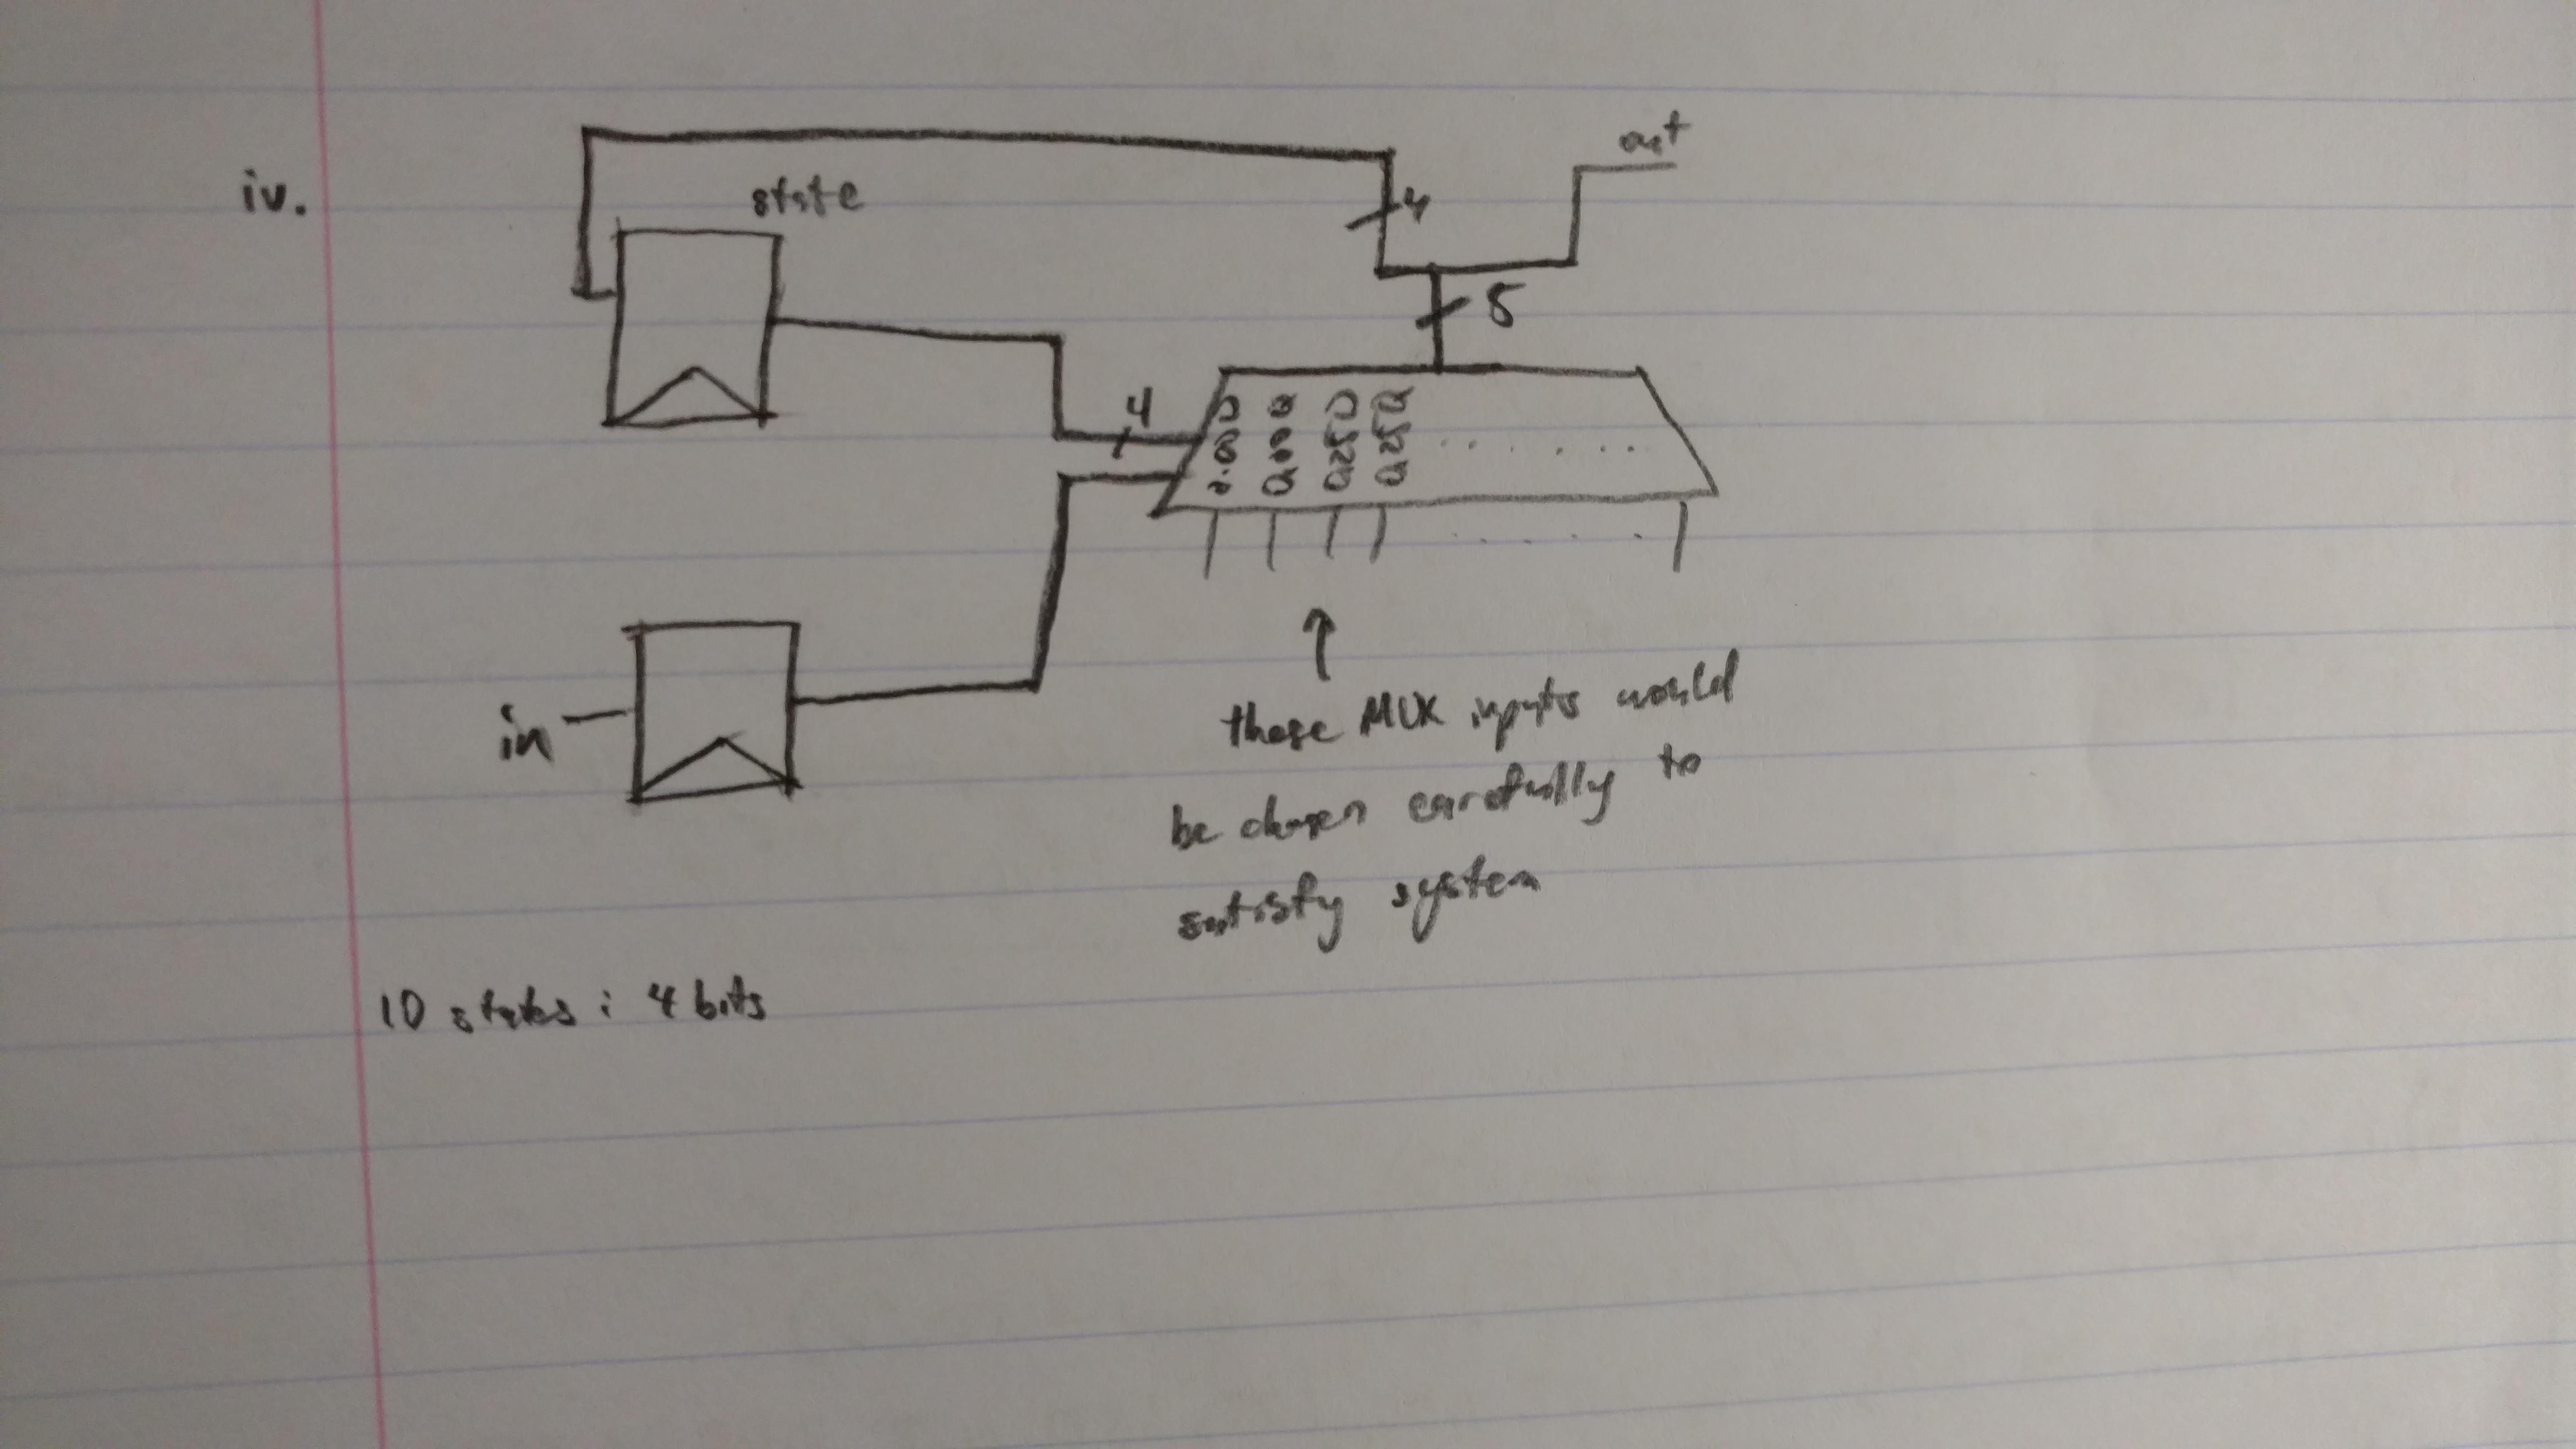 iv.
state
out
4
5
4
in
these MUX inputs would
be chosen carefully to
satisfy system
10 states : 4 bits